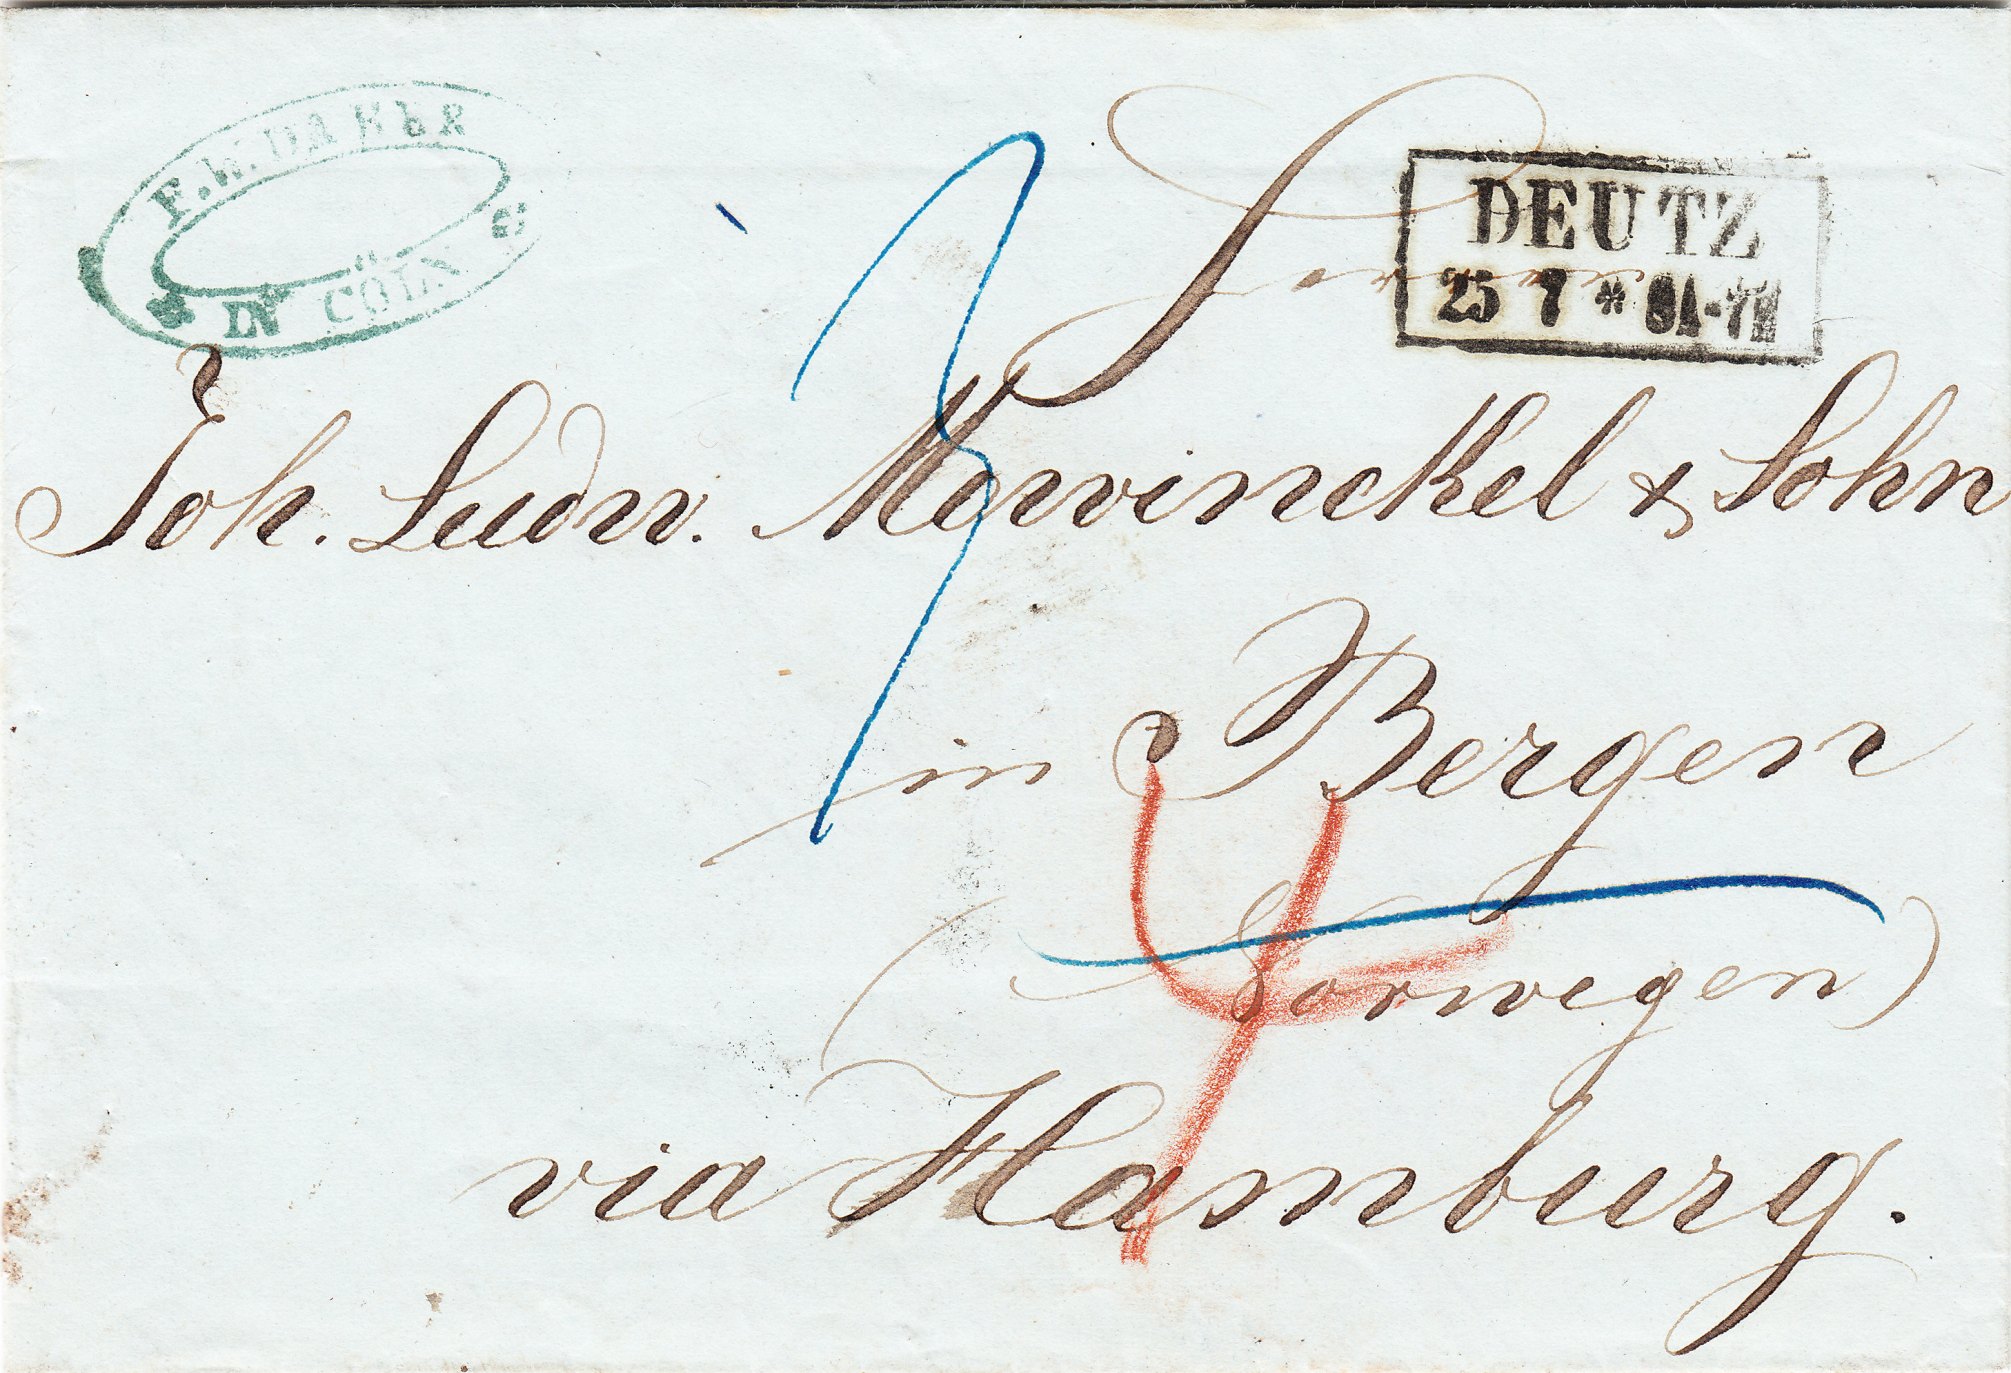 F.W. DAHER
IN CÖLN
DEUTZ
25 7 *
Joh. Ludw. Mowinckel & Sohn
in Bergen
(Norwegen)
via Hamburg.